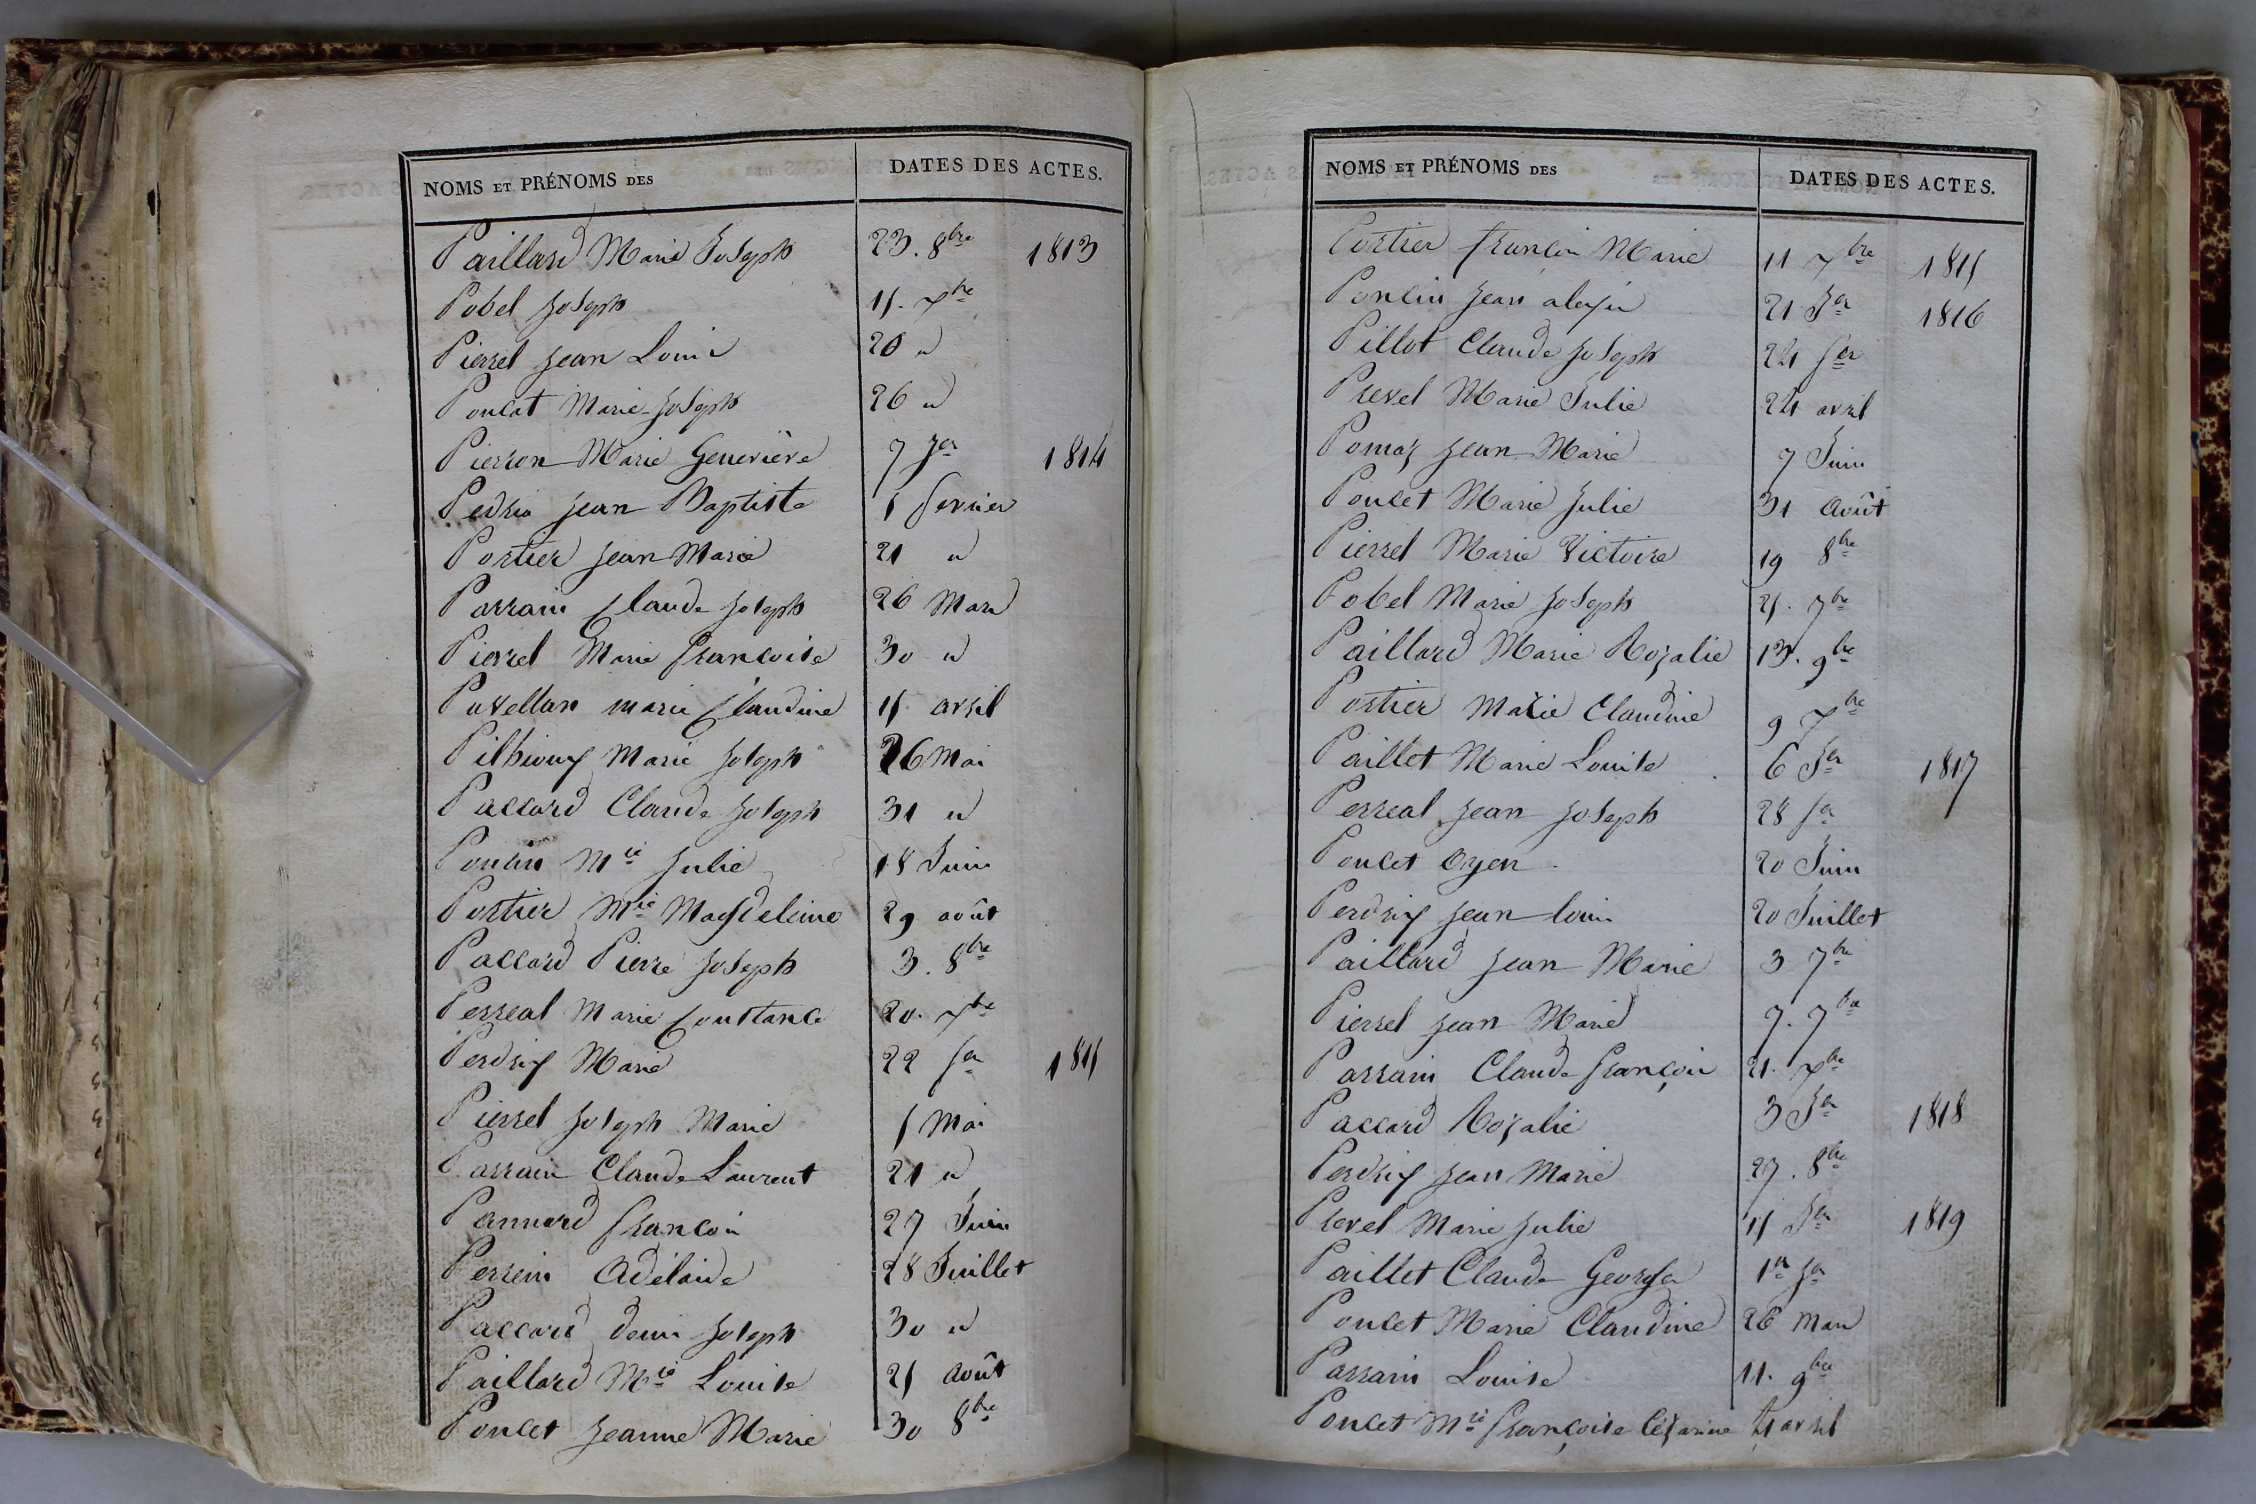 NOMS ET PRÉNOMS DES DATES DES ACTES.
Paillard Marie Joseph 23. 8bre 1813
Pobel Joseph 15. xbre
Pierrel Jean Louis 20 "
Poncet Marie Joseph 26 "
Pierron Marie Geneviève 7 Jer 1814
Pedrix Jean Baptiste 5 fevrier
Portier Jean Marie 21 "
Parrain Claude Joseph 26 Mars
Pierrel Marie françoise 30 "
Pavellan marie Claudine 15 avril
Marie Joseph 26 Mai
Paccard Claude Joseph 31 "
Poncin Mie Julie 18 Juin
Portier Mie Magdeleine 29 août
Paccard Pierre Joseph 3. 8bre
Perreal Marie Constance 20. xbre
Perdrix Marie 22 fer 1815
Pierrel Joseph Marie 5 Mai
Parrain Claude Laurent 21 "
Pannard françois 27 Juin
Perrein Adélaide 28 Juillet
Paccard denis Joseph 30 "
Paillard Mie Louise 25 Août
Poncet Jeanne Marie 30 8bre
NOMS ET PRÉNOMS DES DATES DES ACTES.
Portier françois Marie 11 xbre 1815
Poncin Jean alexis 21 Jer 1816
Pillot Claude Joseph 24 fer
Prevel Marie Julie 24 avril
Jean Marie 7 Juin
Poncet Marie Julie 31 Août
Pierrel Marie Victoire 19 8bre
Pobel Marie Joseph 25. 7bre
Paillard Marie Rozalie 13. 9bre
Portier Marie Claudine 9 xbre
Paillet Marie Louise 6 Jer 1817
Perreal Jean Joseph 28 fer
Poncet Oyen 20 Juin
Perdrix Jean louis 20 Juillet
Paillard Jean Marie 3 7bre
Pierrel Jean Marie 7. 7bre
Parrain Claude françois 21. xbre
Paccard Rozalie 3 Jer 1818
Perdrix Jean Marie 27. 8bre
Prevel Marie Julie 15 Jer 1819
Paillet Claude George 1er fer
Poncet Marie Claudine 26 Mars
Parrain Louise 11. 9bre
Poncet Mie françoise Cézarine avril